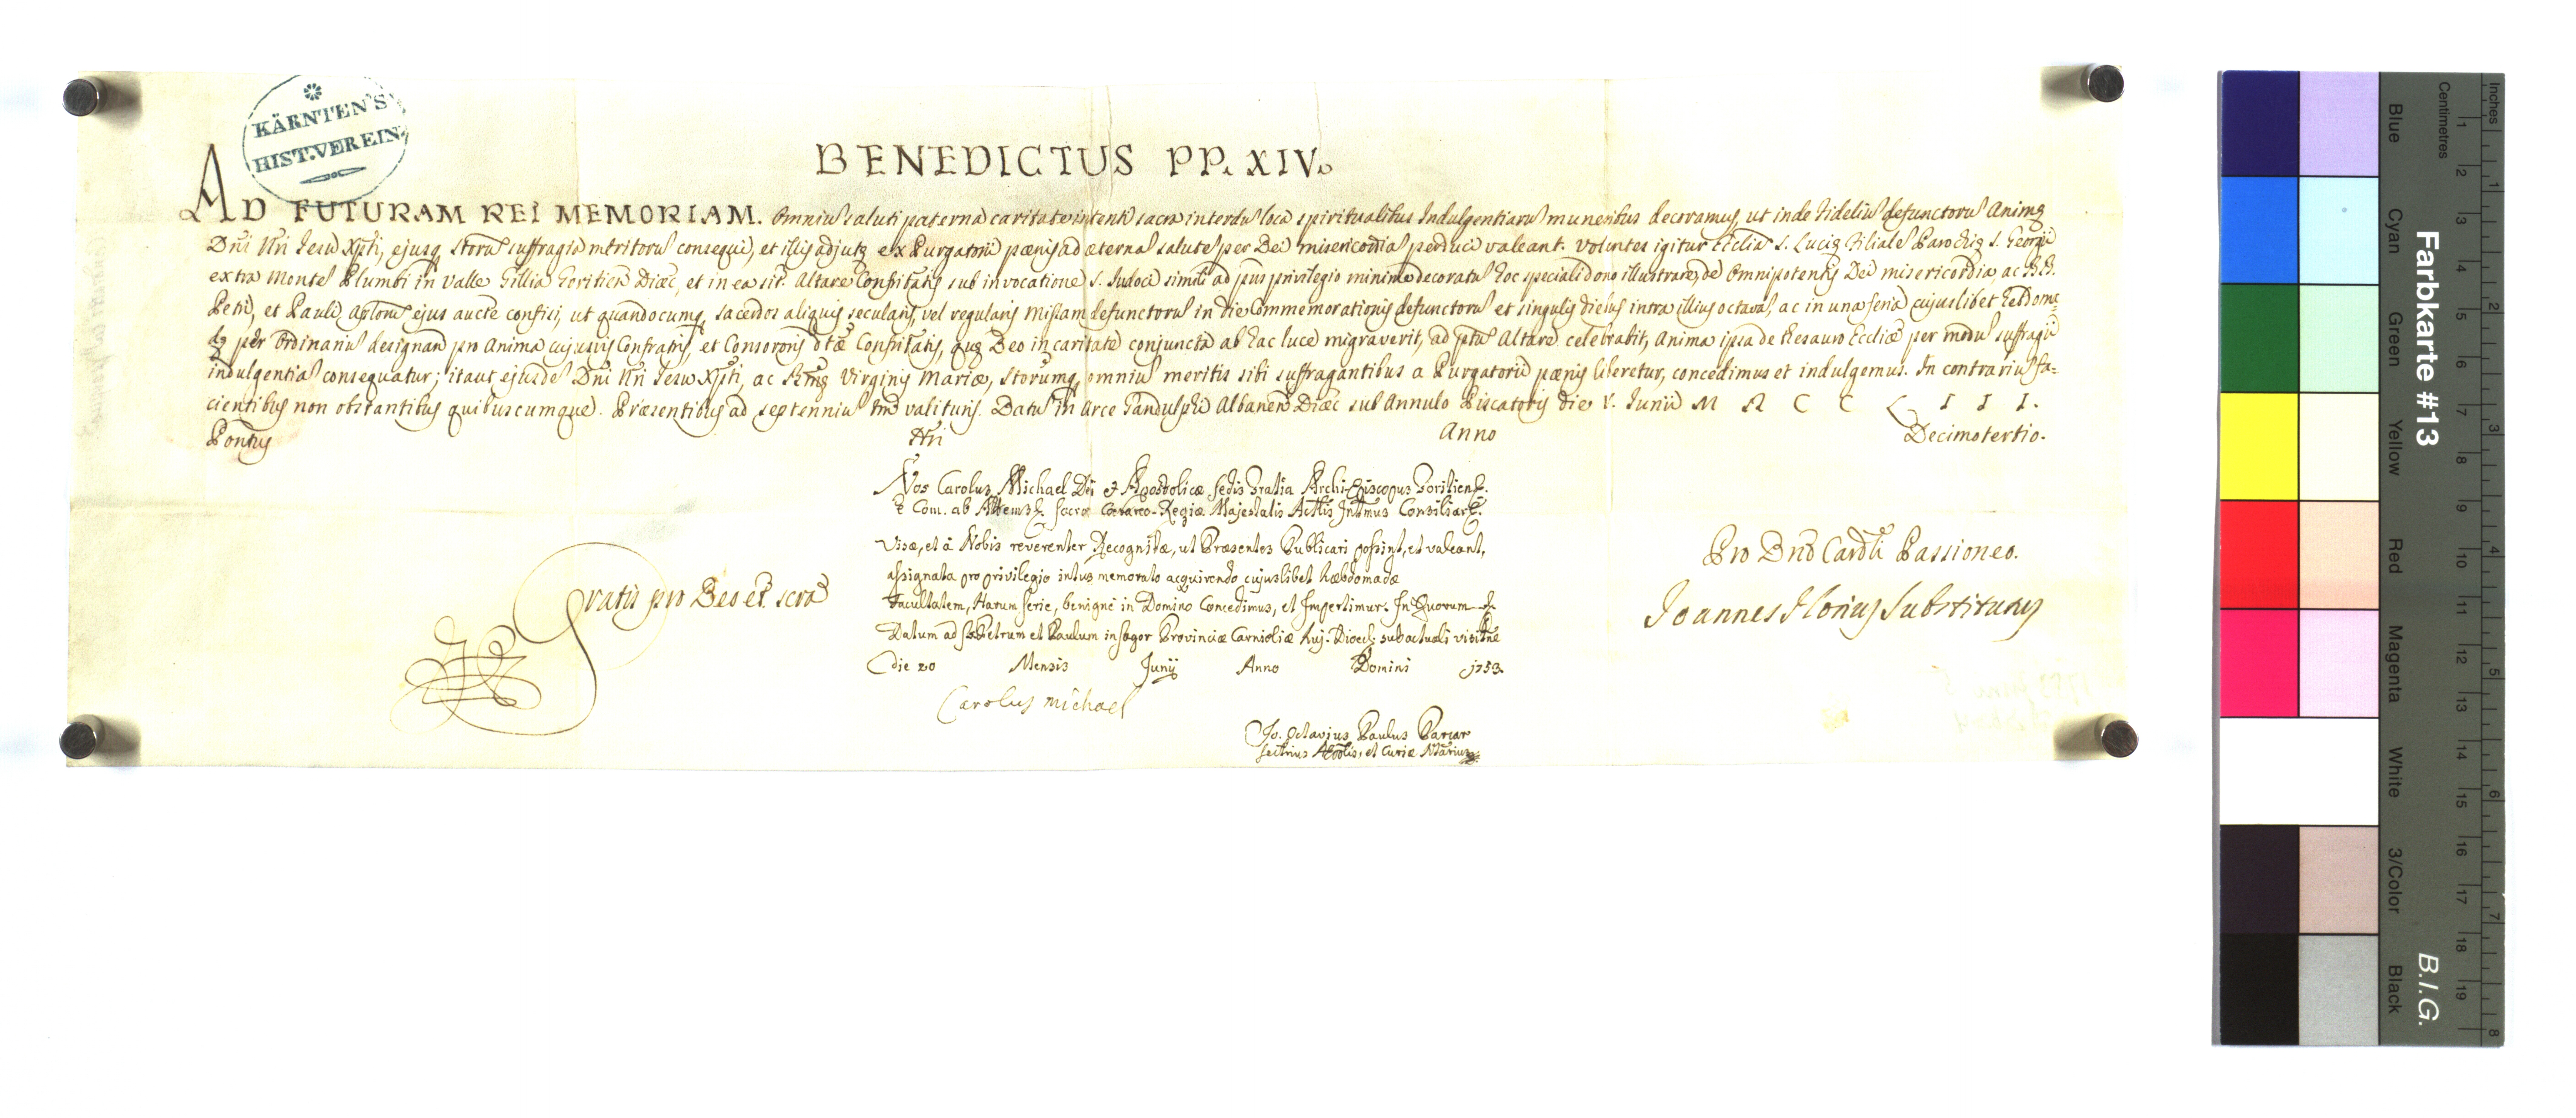 KÄRNTEN'S
HIST. VEREIN.
BENEDICTUS PP. XIV.
AD FUTURAM REI MEMORIAM. Omniu saluti paterna caritate intenti sacra interdu loca spiritualibus Indulgentiaru muneribus decoramus, ut inde Fideliu defunctoru Animę
Dni Nri Jesu Xpti, ejusq Storu suffragia meritoru consequi, et illis adjutę ex Purgatorii pœnis ad æterna salute per Dei misericordia perduci valeant. Volentes igitur Eccliã S. Lucię Filiale Parochię S. Georgii
extra Monte Plumbi in Valle Gillia Goritien Diœc, et in ea sit. Altare Confritatis sub invocatione S. Judoci simili ad pns privilegio minime decoratu hoc speciali dono illustrare, de Omnipotentis Dei misericordia, ac BB.
Petri, et Pauli Aplorũ ejus aucte confisi, ut quandocumq, sacerdos aliquis secularis, vel regularis Missam defunctoru in die Commemorationis defunctoru et singulis diebus intra illius octava, ac in una feria cujuslibet hebdoma=
dę per Ordinariu designand pro Anima cujusvis Confratris, et Consororis dtæ Confritatis, quę Deo in caritate conjuncta ab hac luce migraverit, ad ptu Altare celebrabit, Anima ipsa de thesauro Eccliæ per modu suffragii
indulgentia consequatur; ita ut ejusde Dni Nri Jesu Xpti, ac Bmę Virginis Mariæ, Storumq, omniu meritis sibi suffragantibus a Purgatorii pœnis liberetur, concedimus et indulgemus. In contrariu fa=
cientibus non obstantibus quibuscumque. Præsentibus ad septenniu tm valituris. Datu in Arce Gandulphi Albanen Diœc sub Annulo Piscatoris die V. Junii M D C C L I I I.
Pontus Nri Anno Decimotertio.
Nos Carolus Michael Dei et Apostolicæ Sedis Gratia Archi-Episcopus Goritiens.
Com. ab Attems Sacræ Cæsareo-Regiæ Majestatis Actlis Intimus Consiliar.
Visæ, et à Nobis reverenter Recognitæ, ut Præsentes Publicari possint, et valeant,
assignata pro privilegio intus memorato acquirendo cujuslibet hæbdomadæ
Facultatem, Harum serie, benignè in Domino Concedimus, et Impertimur. In Quorum
Datum ad SS. Petrum et Paulum in Sagor Provinciæ Carnioliæ huj. Dioec: sub actuali visitne
die 20 Mensis Junii Anno Domini 1753.
Carolus Michael
Jo. Octavius Paulus
Sectrius et Curiæ Ntarius
Gratis pro Deo et scra
Pro Dno Cardli Passioneo.
Joannes Florius Substitutus
Inches
Centimetres
1 2 3 4 5 6 7 8 9 10 11 12 13 14 15 16 17 18 19
1 2 3 4 5 6 7 8
Blue Cyan Green Yellow Red Magenta White 3/Color Black
Farbkarte #13
B.I.G.